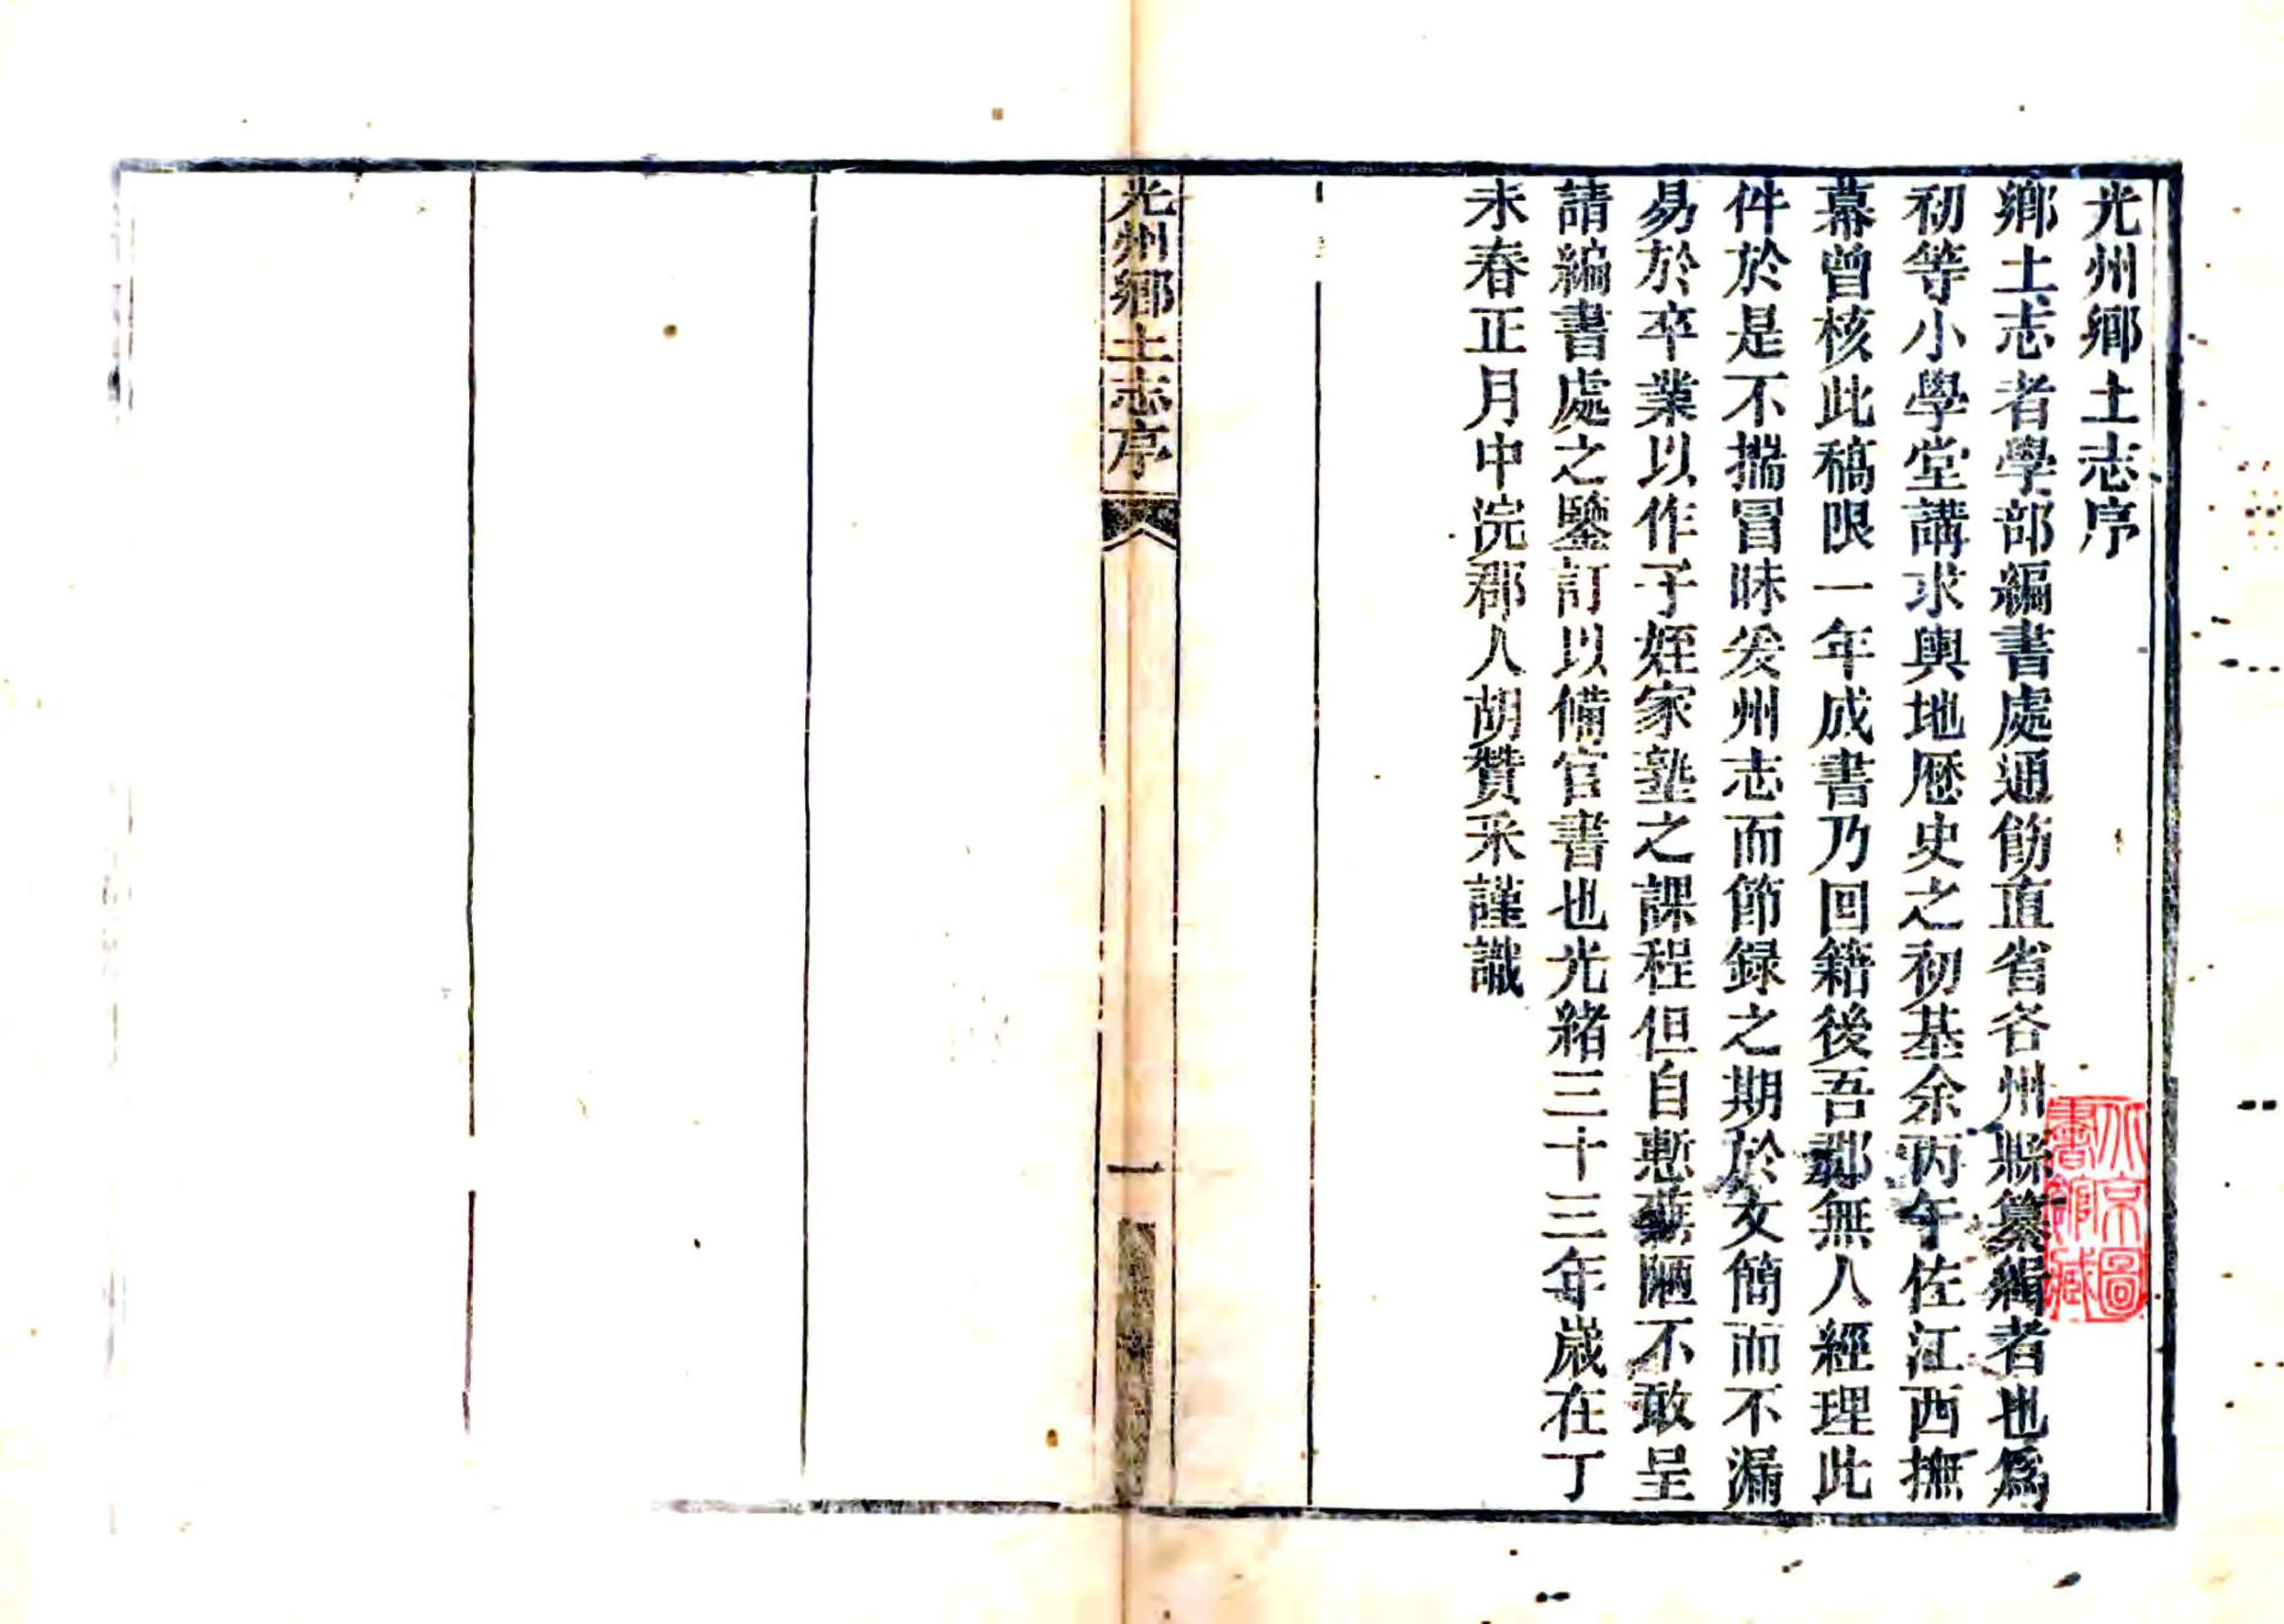 光州鄉土志序
鄉土志者學部編書處通飭直省各州縣纂輯者也爲
初等小學堂講求輿地歷史之初基余丙午佐江西撫
幕曾核此稿限一年成書乃回籍後吾郡無人經理此
件於是不揣冒昧爰州志而節録之期於文簡而不漏
易於卒業以作子姪家塾之課程但自慙蕪陋不敢呈
請編書處之鑒訂以備官書也光緒三十三年歲在丁
未春正月中浣郡人胡贊采謹識
光州鄉土志序
一
京圖
書館藏